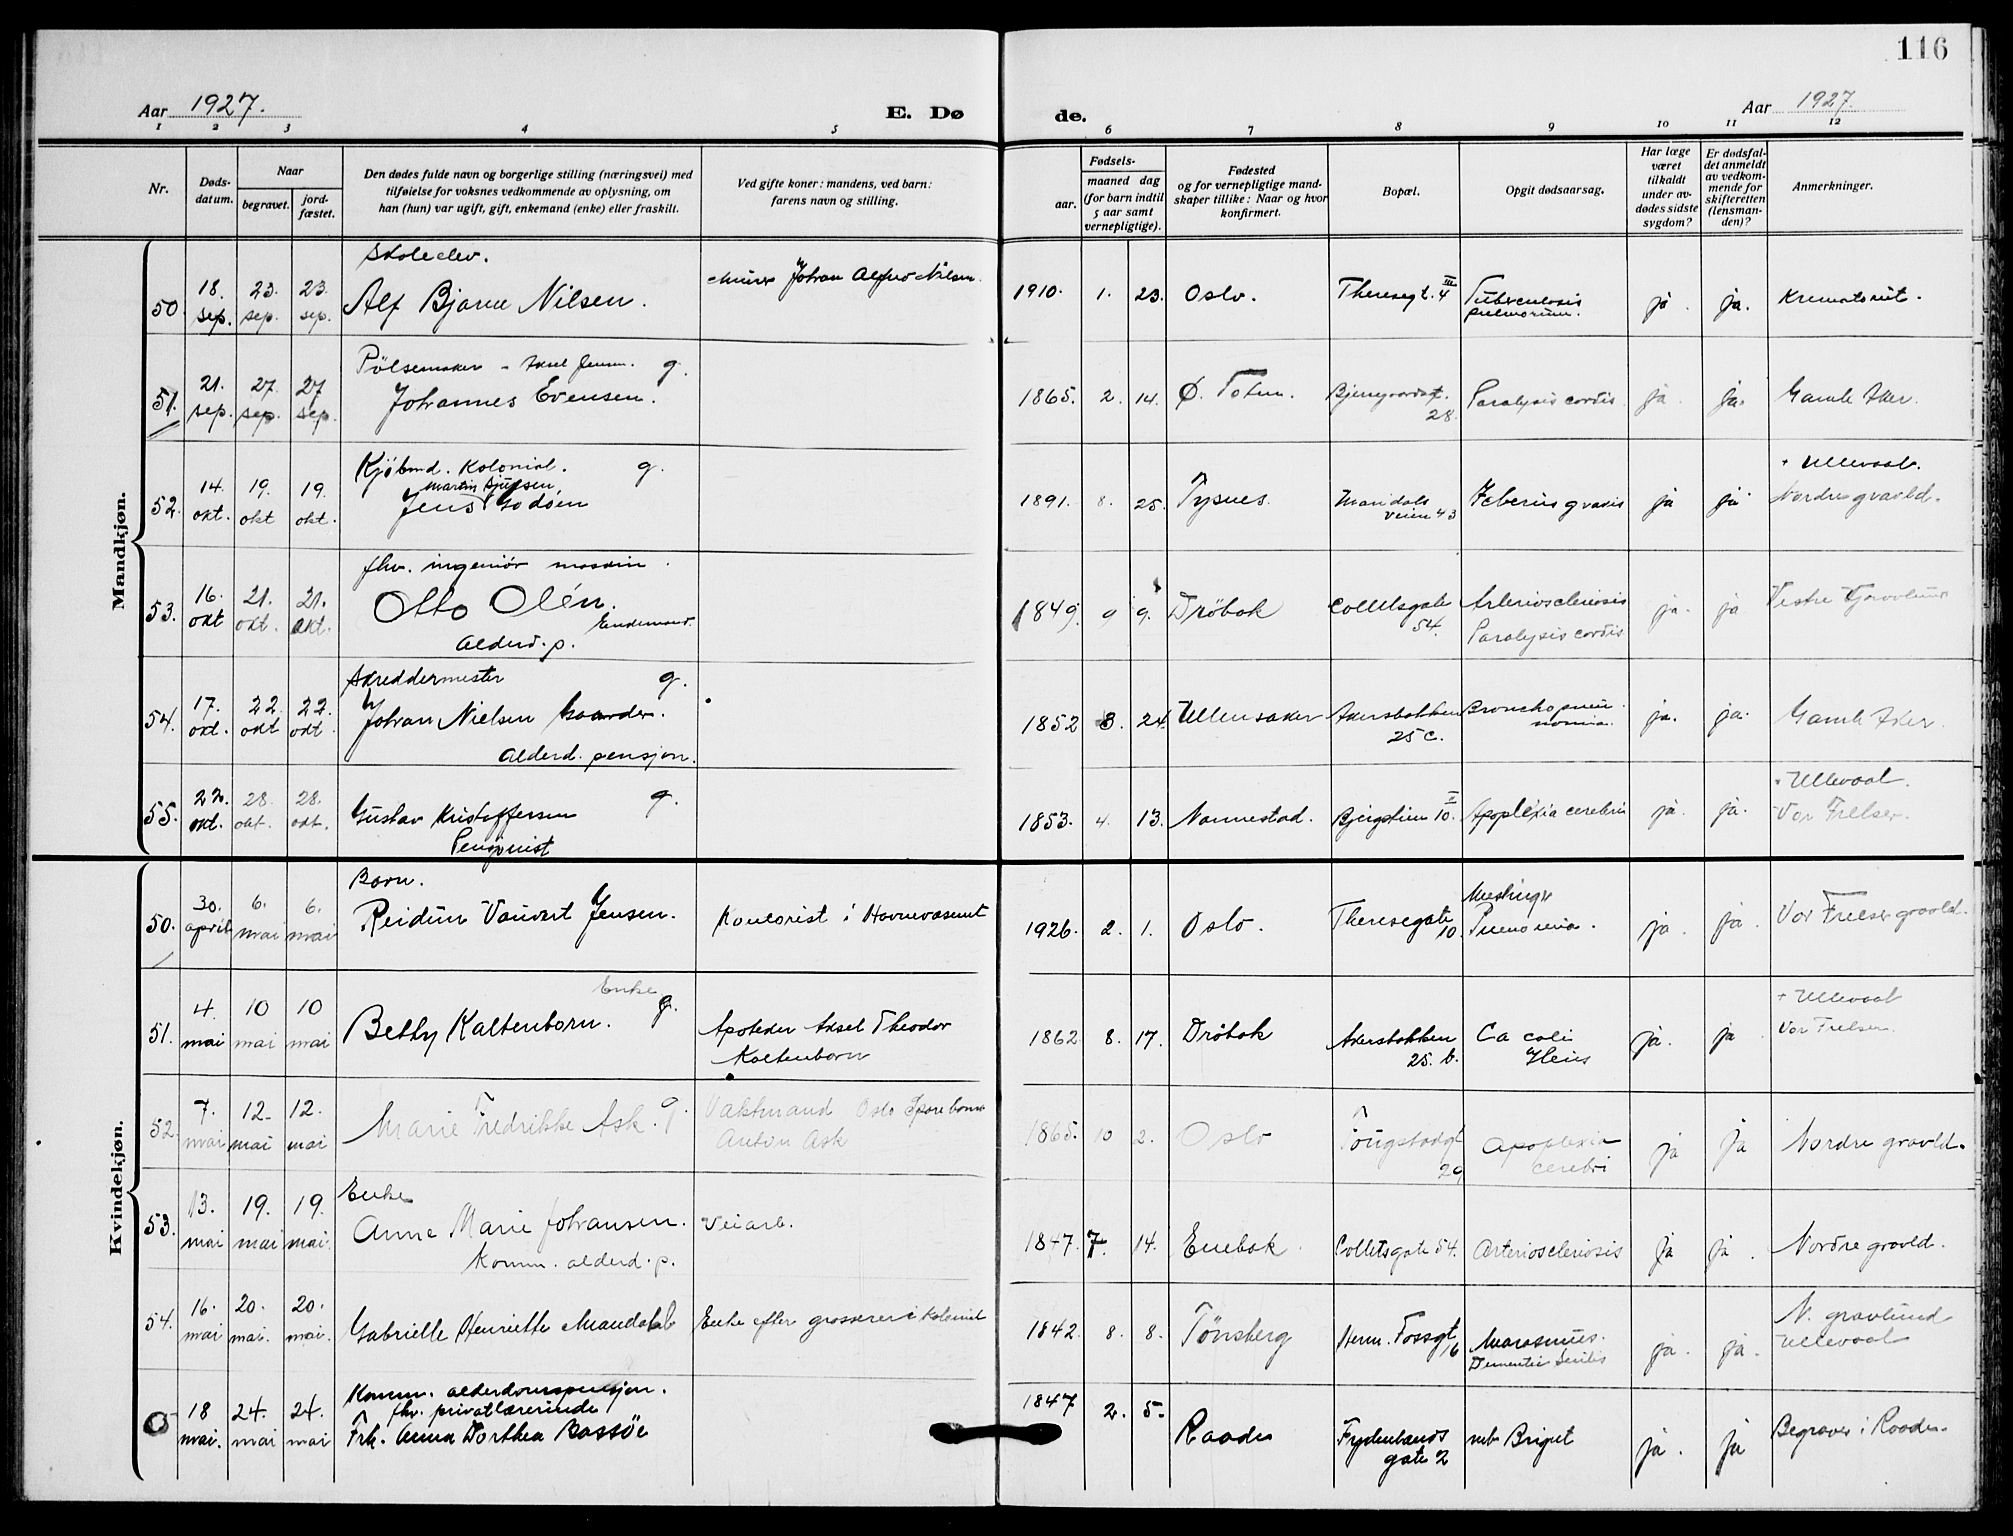 116
Aar 1927.
E. Dø
de.
Aar 1927.
1 2 3 4 5 6 7 8 9 10 11 12
Nr.
Døds-
datum.
Naar
begravet.
jord-
fæstet.
Den dødes fulde navn og borgerlige stilling (næringsvei) med
tilføielse for voksnes vedkommende av oplysning, om
han (hun) var ugift, gift, enkemand (enke) eller fraskilt.
Ved gifte koner: mandens, ved barn:
farens navn og stilling.
Fødsels-
aar.
maaned dag
(for barn indtil
5 aar samt
vernepligtige).
Fødested
og for vernepligtige mand-
skaper tillike: Naar og hvor
konfirmert.
Bopæl.
Opgit dødsaarsag.
Har læge
været
tilkaldt
under av-
dødes sidste
sygdom?
Er dødsfal-
det anmeldt
av vedkom-
mende for
skifteretten
(lensman-
den)?
Anmerkninger.
Mandkjøn.
Skoleelev.
50. 18. sep. 23. sep. 23. sep. Alf Bjarne Nilsen. Murer Johan Alfred Nilsen. 1910. 1. 23. Oslo. Theresegt. 4 III Tuberculosis
pulmorum. ja. ja. Krematoriet.
Pölsemaker - Aksel Jensen. g.
51. 21. sep. 27. sep. 27 sep. Johannes Evensen. 1865. 2. 14. Ø. Toten. Bjerregaardsgt.
28. Paralysis cordis ja. ja. Gamle Aker.
Kjøbmd. Kolonial. g. + Ullevaal.
52. 14. okt. 19. okt 19. okt. Jens Martin Sjursen Godöen 1891. 8. 25. Tysnes. Maridals
veien 43 Icterus gravis ja ja Nordre gravld.
fhv. ingeniör maskin.
53. 16. okt 21. okt. 21. okt. Otto Olén. Enkemand. 1849. 9 9. Dröbak Colletsgate
54. Arterioscleriosis
Paralysis cordis ja. ja Vestre Gravlund
Alderd. p.
Skreddermester g.
54. 17. okt. 22. okt 22. okt. Johan Nielsen Gaarder. 1852 3. 24. Ullensaker Akersbakken
25 c. Bronchopneu-
monia. ja. ja. Gamle Aker.
Alderd. pensjon.
+ Ullevaal.
55. 22. okt. 28. okt. 28. okt. Gustav Kristoffersen g. 1853. 4. 13. Nannestad. Bjergstien 10. V Apoplexia cerebri ja. ja. Vor Frelser.
Pensjonist
Kvindekjøn.
Barn.
50. 30. april 6. mai 6. mai Reidun Vauvert Jensen. Kontorist i Havnevæsenet 1926. 2. 1. Oslo. Theresegate
10. Meslinger
Pneumonia. ja. ja. Vor Frelser gravld.
Enke g. + Ullevaal
51. 4. mai 10 mai 10 mai Betty Kaltenborn. Apoteker Aksel Theodor
Kaltenborn 1862 8. 17. Dröbak Akersbakken
25. b. Ca coli
Ileus ja. ja Vor Frelser.
52. 7. mai 12. mai 12. mai Marie Fredrikke Ask. g. Vaktmand Oslo Sporebane
Anton Ask 1865. 10 2. Oslo Tougstadgt
29 Apoplexia
cerebri ja ja Nordre gravld.
Enke
53. 13. mai 19. mai 19. mai. Anne Marie Johansen. Veiarb. 1847. 7. 14. Enebak. Colletsgate 54. Arteriosclerosis ja ja. Nordre gravld.
Komm. alderd. p.
54. 16. mai 20. mai. 20. mai. Gabrielle Henriette Mandahl Enke efter grosserer i kolonial 1842. 8. 8. Tönsberg Herm. Fossgt
16 Marasmus.
Dementia senilis ja. ja. N. gravlund
Ullevaal
Komm. alderdomspensjon.
fhv. privatlærerinde
18 mai. 24. mai 24. mai Frk. Anna Dorthea Bassöe 1847 2. 5. Raade Frydenlunds
gate 2 mb Brigut ja. ja Begraves i Raade.